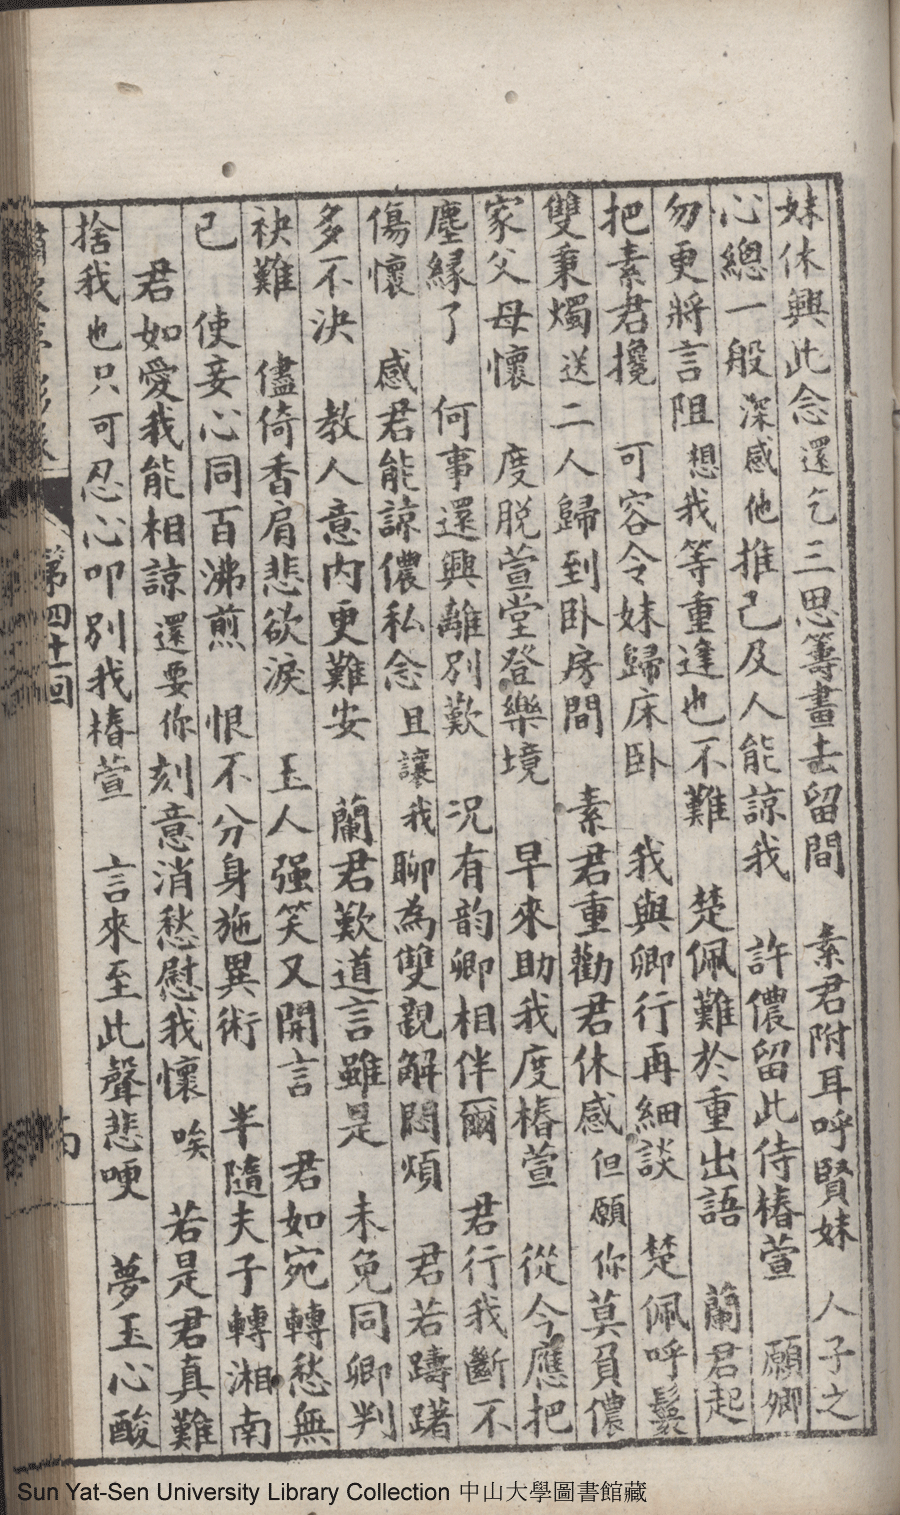 妹休興此念還乞三思籌畫去留間　素君附耳呼賢妹　人子之
心總一般深感他推己及人能諒我　許儂留此侍椿萱　願卿
勿更將言阻想我等重逢也不難　楚佩難於重出語　蘭君起
把素君攙　可容令妹歸床卧　我與卿行再細談　楚佩呼鬟
雙秉燭送二人歸到卧房間　素君重勸君休感但願你莫負儂
家父母懷　度脱萱堂登樂境　早來助我度椿萱　從今應把
塵緣了　何事還興離別歎　况有韵卿相伴爾　君行我斷不
傷懷　感君能諒儂私念且讓我聊為雙親解悶煩　君若躊躇
多不決　教人意内更難安　蘭君歎道言雖是　未免同卿判
袂難　儘倚香肩悲欲淚　玉人强笑又開言　君如宛轉愁無
已　使妾心同百沸煎　恨不分身施異術　半隨夫子轉湘南
君如愛我能相諒還要你刻意消愁慰我懷唉　若是君真難
捨我也只可忍心叩別我椿萱　言來至此聲悲哽　夢玉心酸
第四十一回
Sun Yat-Sen University Library Collection 中山大學圖書館藏